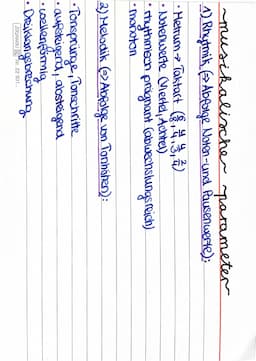 ~musikalische parameter
1) Rhythmik (⇒ Abfolge Noten- und Pausenwerte):
• Metrum → Taktart
• Notenwerte (Viertel, Achtel)
• rhythmisch prägnant (abwechslungsreich)
• monoton
2) Melodik (⇒ Abfolge von Tonhöhen):
• Tonsprünge, Tonschritte
• aufsteigend, absteigend
• wellenförmig
• Dreiklangsbrechung